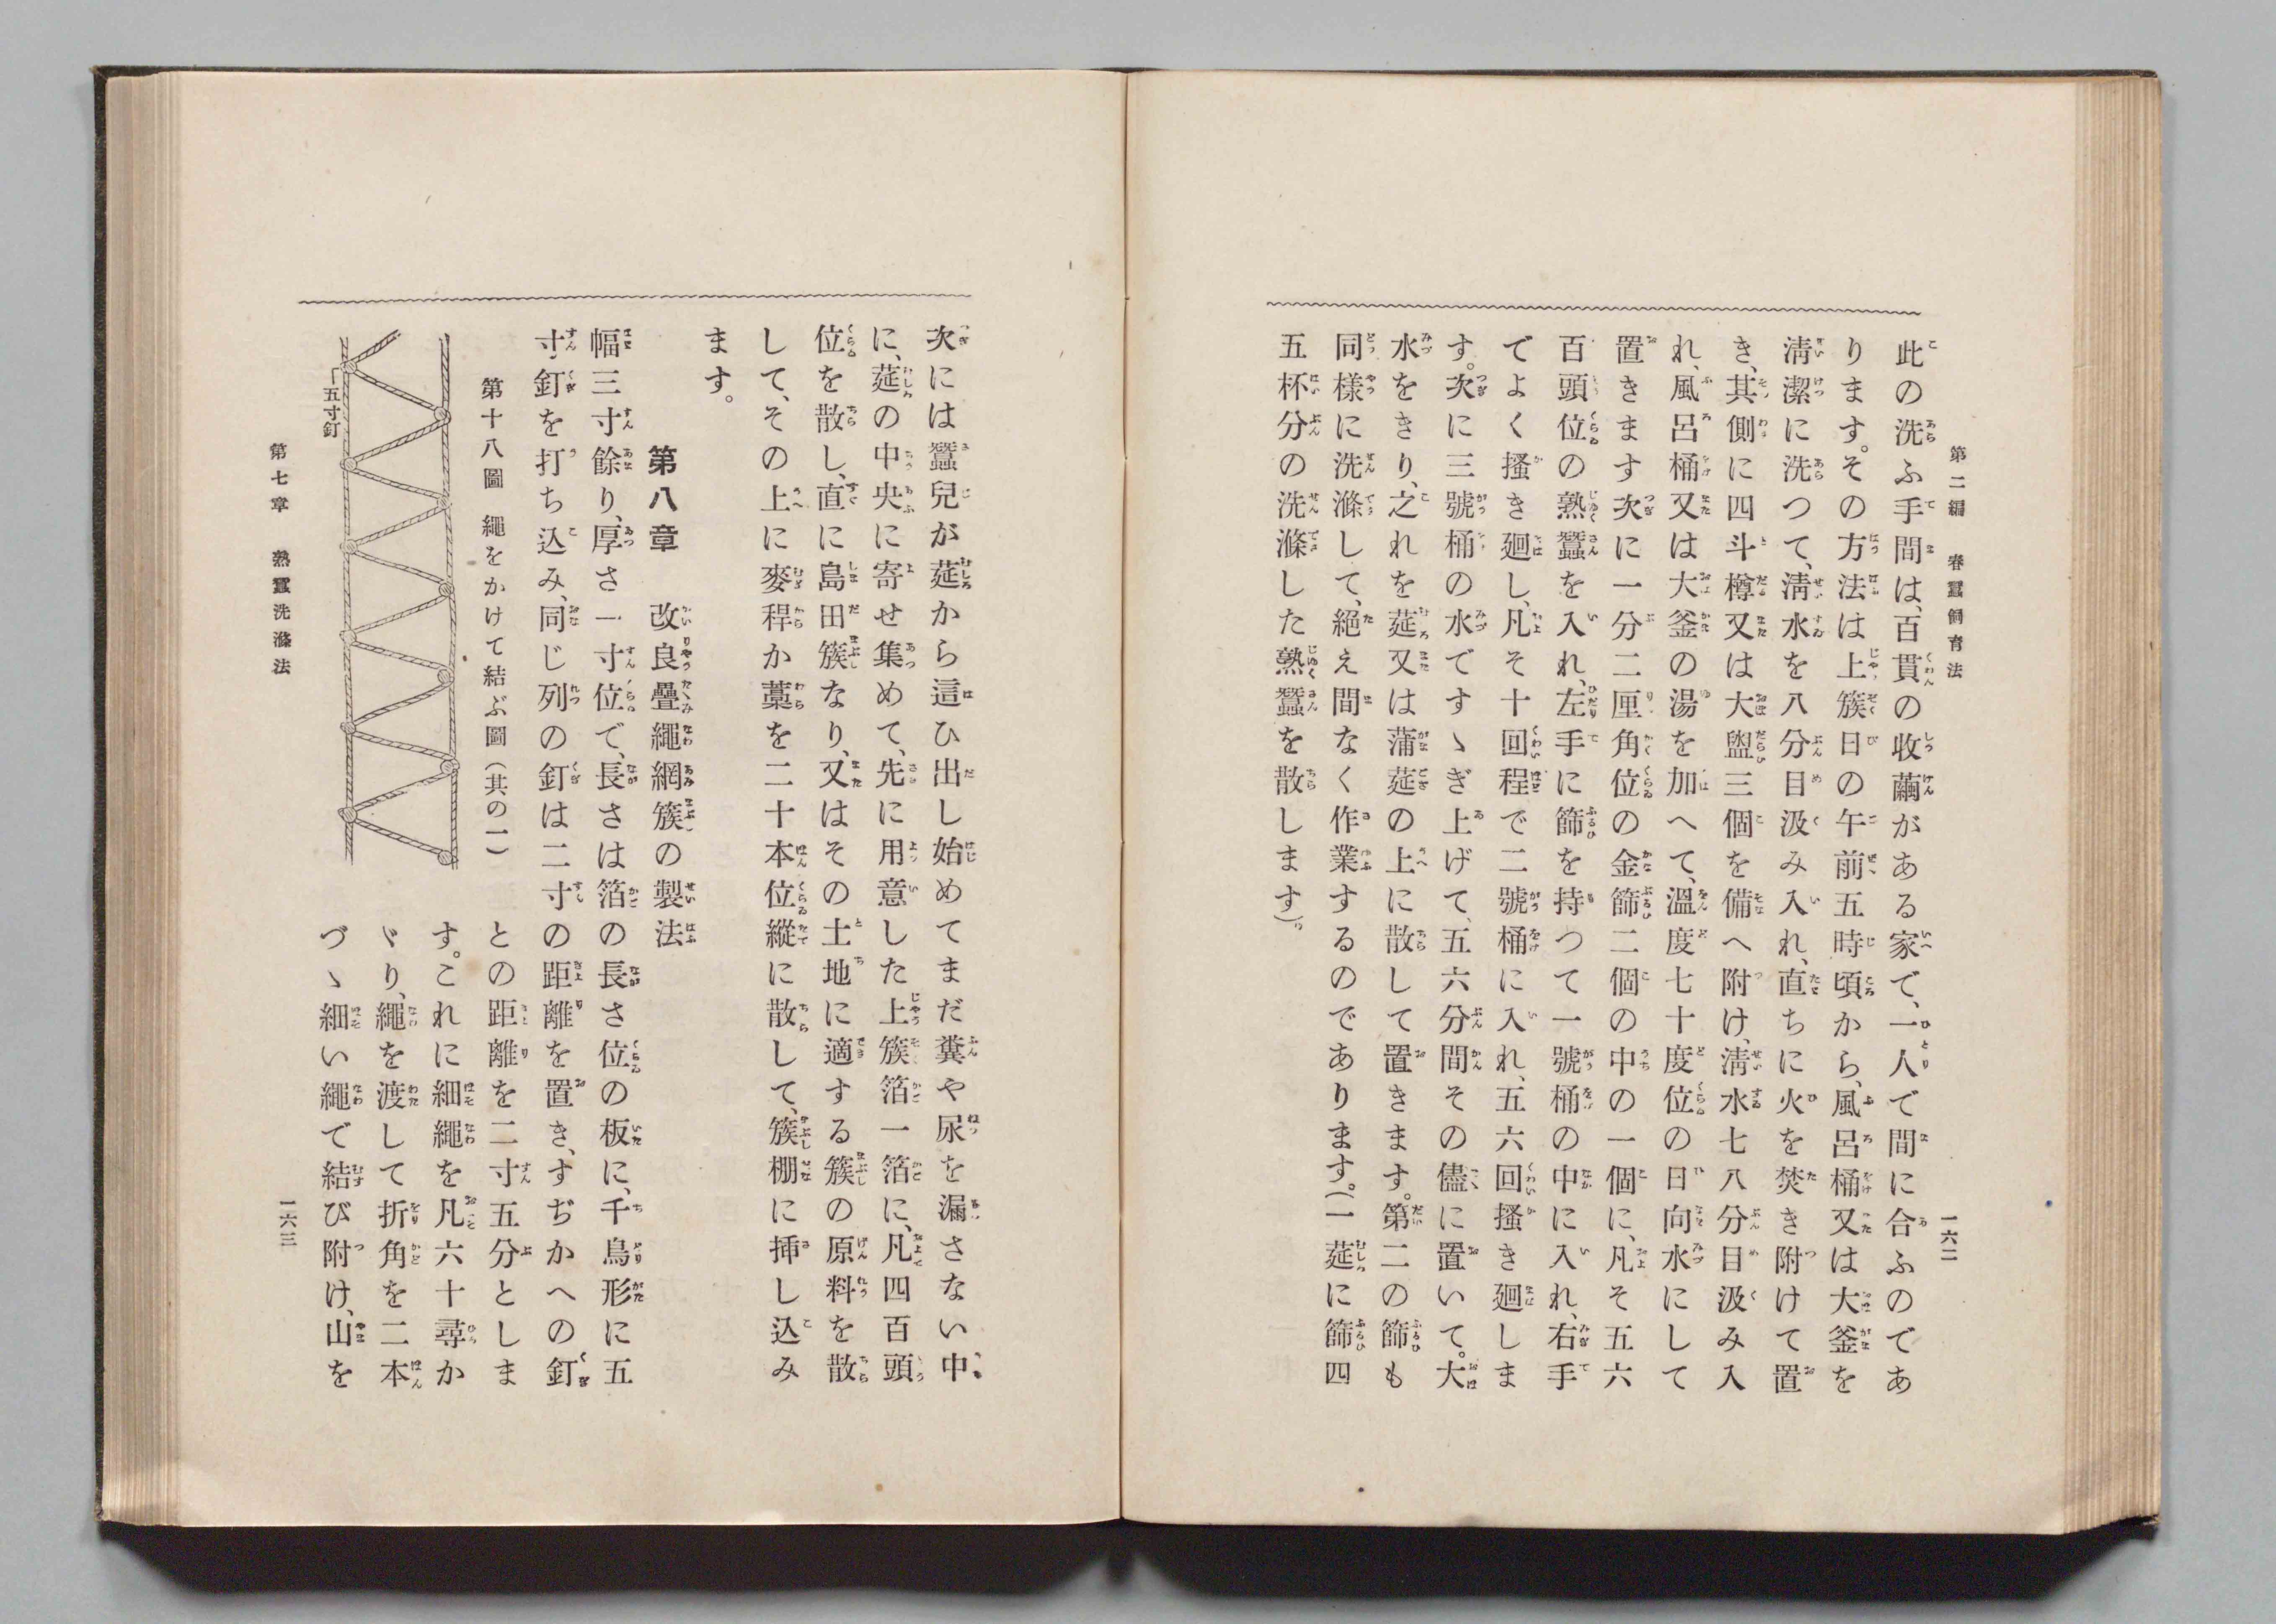 第二編　春蠶飼育法
一六二
此の洗ふ手間は、百貫の收繭がある家で、一人で間に合ふのであ
ります。その方法は上簇日の午前五時頃から、風呂桶又は大釜を
淸潔に洗つて、淸水を八分目汲み入れ、直ちに火を焚き附けて置
き、其側に四斗樽又は大盥三個を備へ附け、淸水七八分目汲み入
れ、風呂桶又は大釜の湯を加へて、溫度七十度位の日向水にして
置きます次に一分二厘角位の金篩二個の中の一個に、凡そ五六
百頭位の熟蠶を入れ、左手に篩を持つて一號桶の中に入れ、右手
でよく搔き廻し、凡そ十回程で二號桶に入れ、五六回搔き廻しま
す。次に三號桶の水ですゝぎ上げて、五六分間その儘に置いて。大
水をきり、之れを莚又は蒲莚の上に散して置きます。第二の篩も
同樣に洗滌して、絕え間なく作業するのであります。(一莚に篩四
五杯分の洗滌した熟蠶を散します)。
次には蠶兒が莚から這ひ出し始めてまだ糞や尿を漏さない中
に、莚の中央に寄せ集めて、先に用意した上簇箔一箔に、凡四百頭
位を散し、直に島田簇なり、又はその土地に適する簇の原料を散
して、その上に麥稈か藁を二十本位縱に散して、簇棚に揷し込み
ます。
第八章　改良疊繩網簇の製法
幅三寸餘り、厚さ一寸位で、長さは箔の長さ位の板に、千鳥形に五
寸釘を打ち込み、同じ列の釘は二寸の距離を置き、すぢかへの釘
との距離を二寸五分としま
す。これに細繩を凡六十尋か
ゞり、繩を渡して折角を二本
づゝ細い繩で結び附け、山を
第十八圖　繩をかけて結ぶ圖(其の一)
五寸釘
第七章　熟蠶洗滌法
一六三